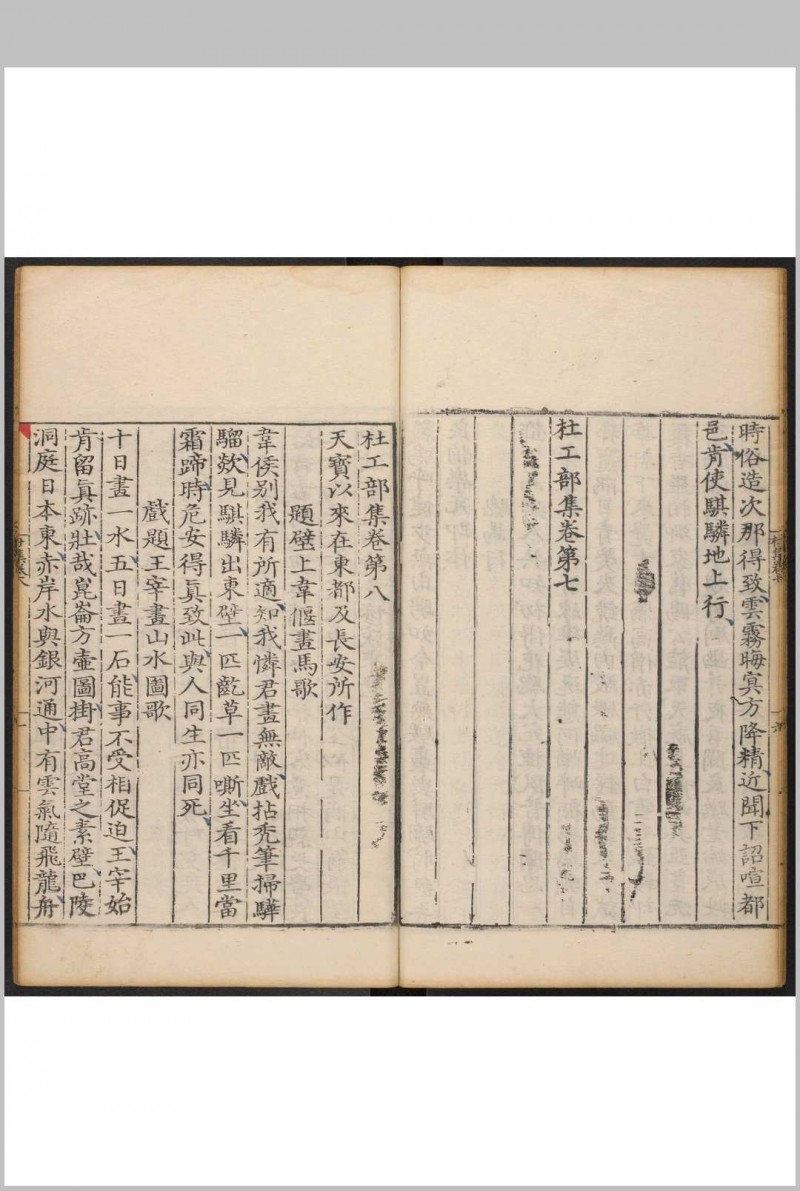 時俗造次那得致雲霧晦㝠方降精近聞下詔喧都
邑肯使騏驎地上行
杜工部集卷第七
杜工部集卷第八
天寶以來在東都及長安所作
題壁上韋偃畫馬歌
韋侯別我有所適知我憐君畫無敵戲拈禿筆掃驊
騮欻見騏驎出東壁一匹齕草一匹嘶坐看千里當
霜蹄時危安得眞致此與人同生亦同死
戲題王宰畫山水圖歌
十日畫一水五日畫一石能事不受相促迫王宰始
肯留眞跡壯哉崑崙方壺圖掛君高堂之素壁巴陵
洞庭日本東赤岸水與銀河通中有雲氣隨飛龍舟